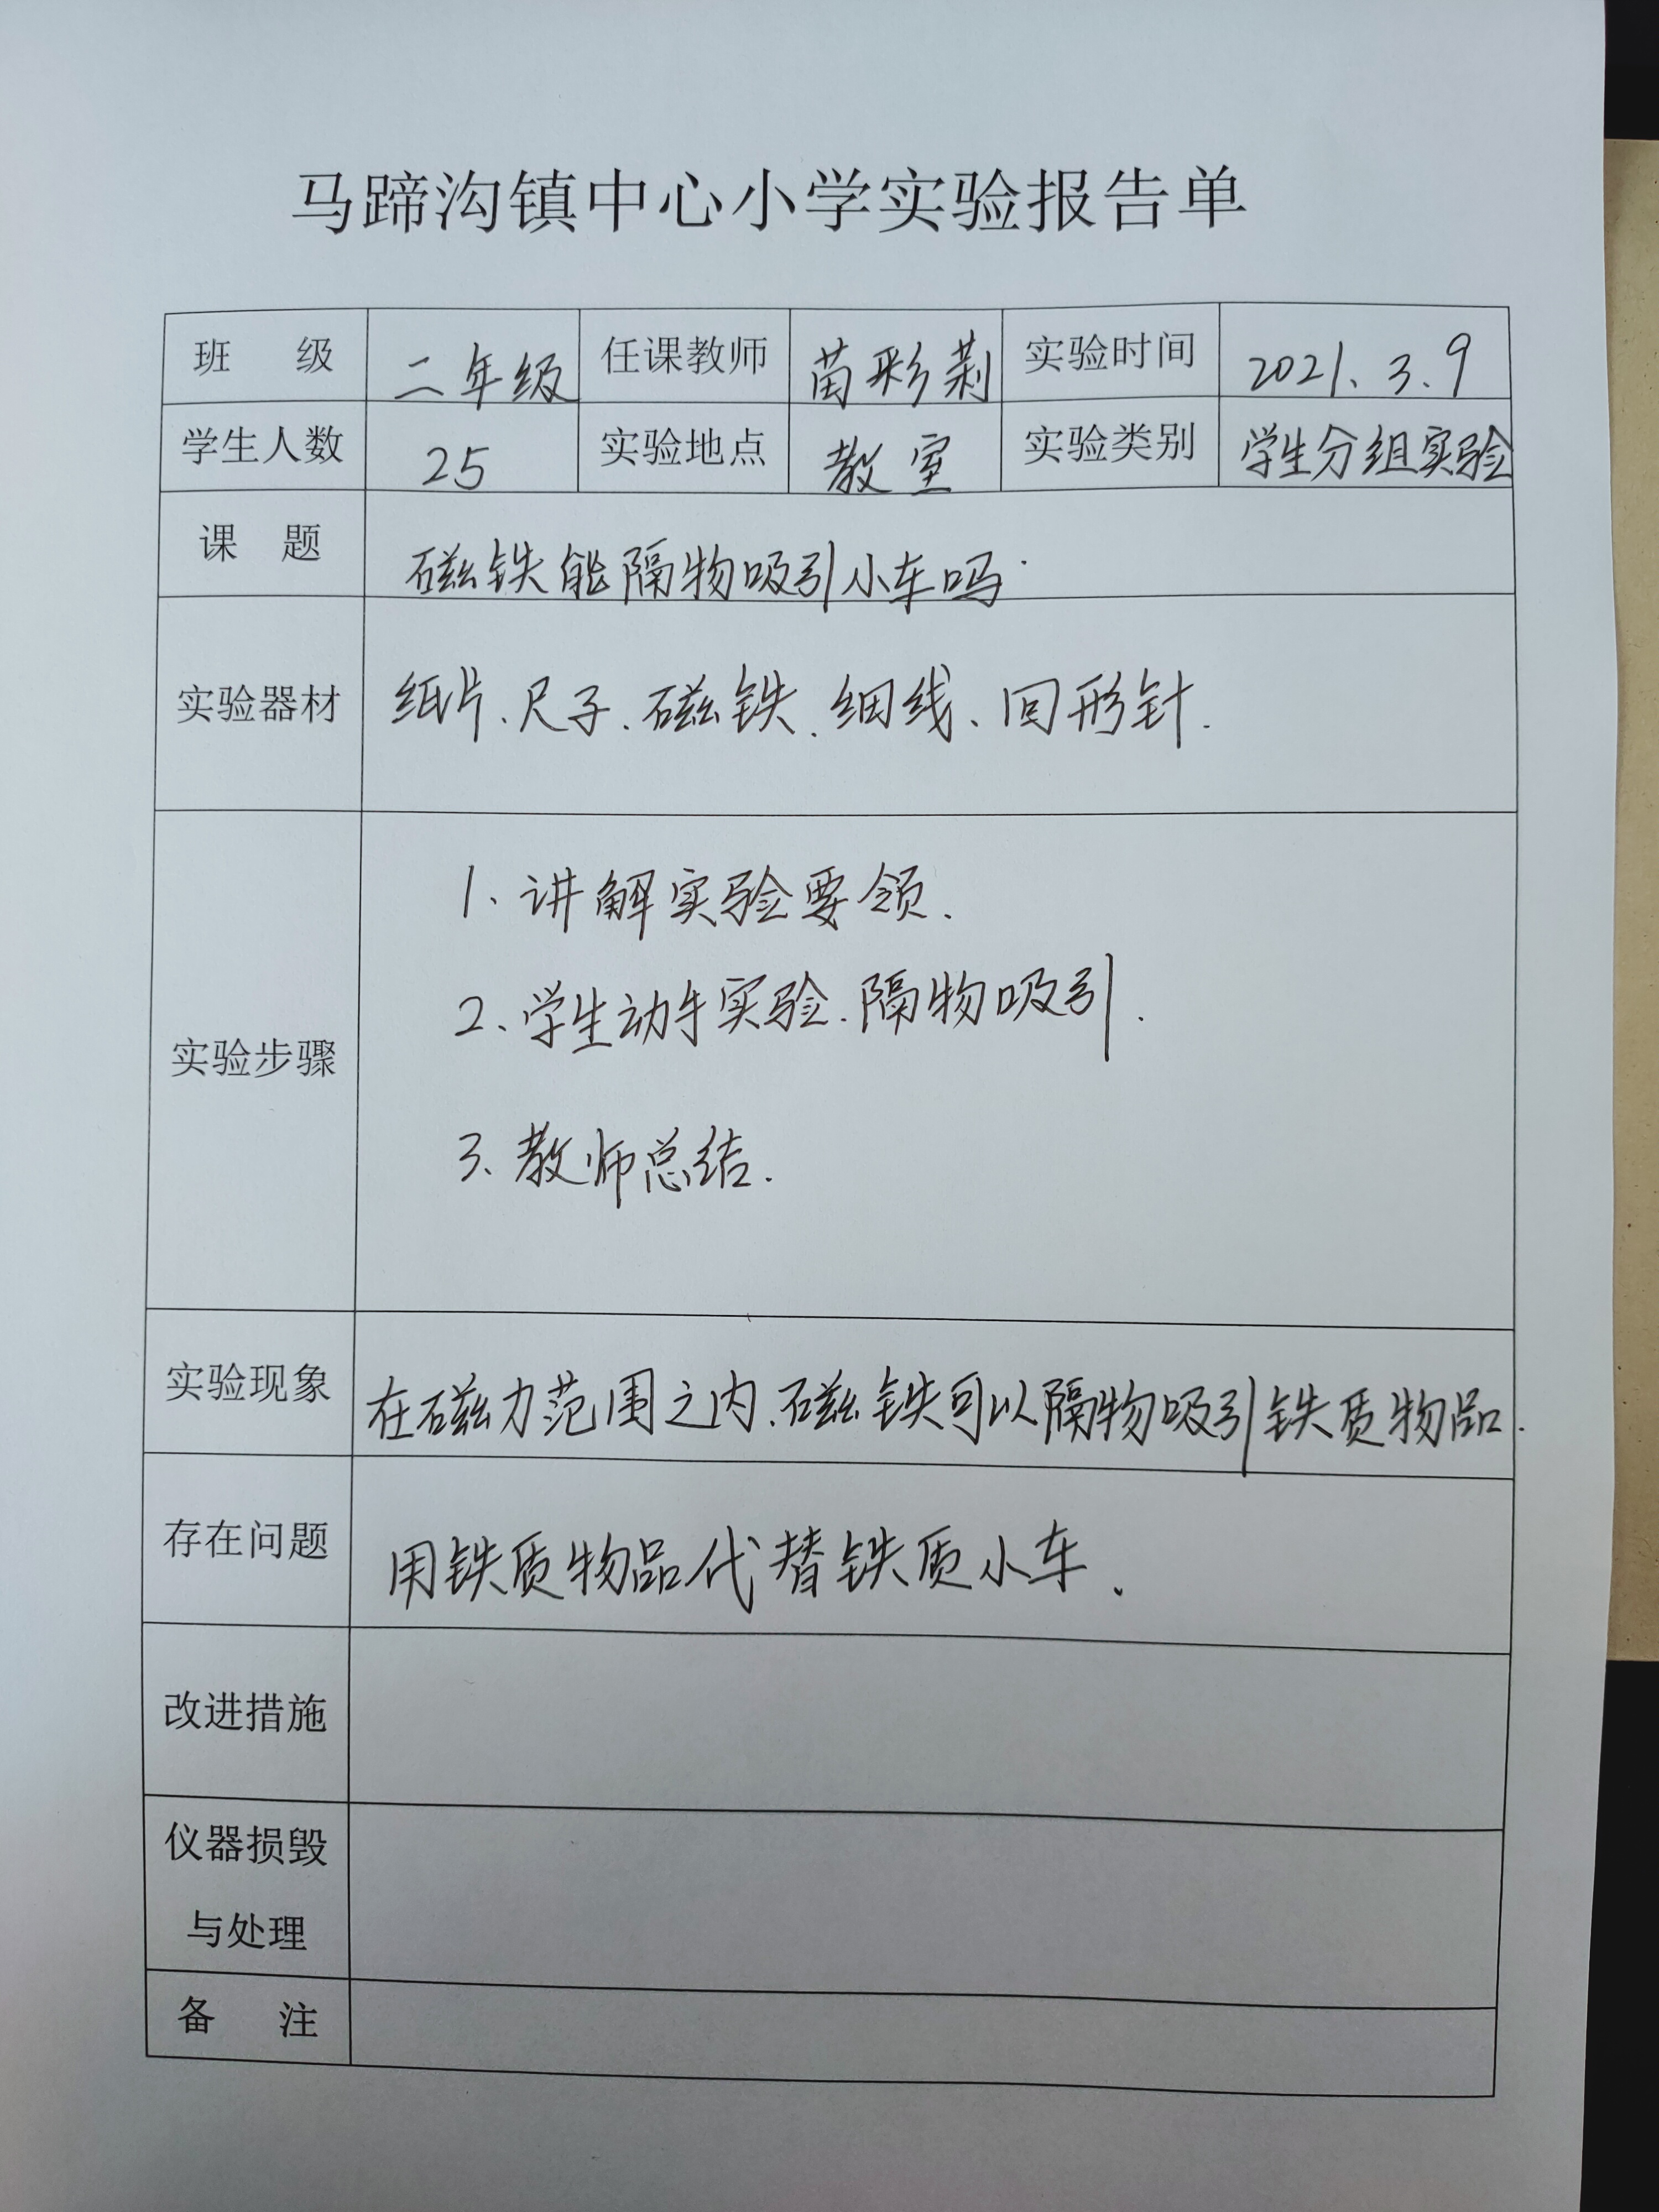 马蹄沟镇中心小学实验报告单
班 级 二年级 任课教师 苗彩莉 实验时间 2021.3.9
学生人数 25 实验地点 教室 实验类别 学生分组实验
课 题 磁铁能隔物吸引小车吗.
实验器材 纸片、尺子、磁铁、细线、回形针.
1、讲解实验要领.
2、学生动手实验.隔物吸引.
实验步骤
3、教师总结.
实验现象 在磁力范围之内、磁铁可以隔物吸引铁质物品.
存在问题 用铁质物品代替铁质小车.
改进措施
仪器损毁
与处理
备 注